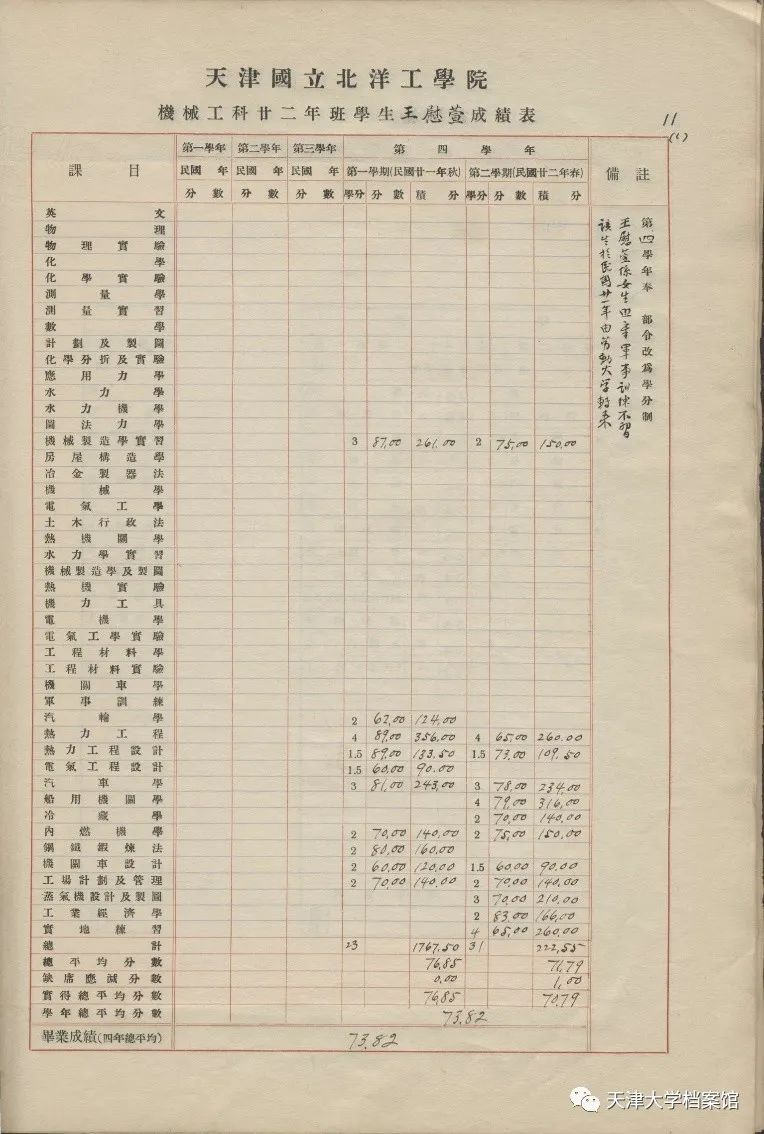 天津國立北洋工學院
機械工科廿二年班學生王慰萱成績表
11
(1)
課目 第一學年 第二學年 第三學年 第四學年 備註
民國 年 民國 年 民國 年 第一學期(民國廿一年秋) 第二學期(民國廿二年春)
分數 分數 分數 學分 分數 積分 學分 分數 積分
英文
物理
物理實驗
化學
化學實驗
測量學
測量實習
數學
計劃及製圖
化學分析及實驗
應用力學
水力學
水力機學
圖法力學
機械製造學實習 3 87.00 261.00 2 75.00 150.00
房屋構造學
冶金製器法
機械學
電氣工學
土木行政法
熱機關學
水力學實習
機械製造學及製圖
熱機實驗
機力工具
電機學
電氣工學實驗
工程材料學
工程材料實驗
機關車學
軍事訓練
汽輪學 2 62.00 124.00
熱力工程 4 89.00 356.00 4 65.00 260.00
熱力工程設計 1.5 89.00 133.50 1.5 73.00 109.50
電氣工程設計 1.5 60.00 90.00
汽車學 3 81.00 243.00 3 78.00 234.00
船用機關學 4 79.00 316.00
冷藏學 2 70.00 140.00
內燃機學 2 70.00 140.00 2 75.00 150.00
鋼鐵鍛煉法 2 80.00 160.00
機關車設計 2 60.00 120.00 1.5 60.00 90.00
工場計劃及管理 2 70.00 140.00 2 70.00 140.00
蒸氣機設計及製圖 3 70.00 210.00
工業經濟學 2 83.00 166.00
實地練習 4 65.00 260.00
總計 23 1767.50 31 222.55
總平均分數 76.85 71.79
缺席應減分數 0.00 1.00
實得總平均分數 76.85 70.79
學年總平均分數 73.82
畢業成績(四年總平均) 73.82
第四學年奉 部令改為學分制
王慰萱係女生軍事訓練不習
該生於民國廿一年由勞動大學轉來
天津大学档案馆